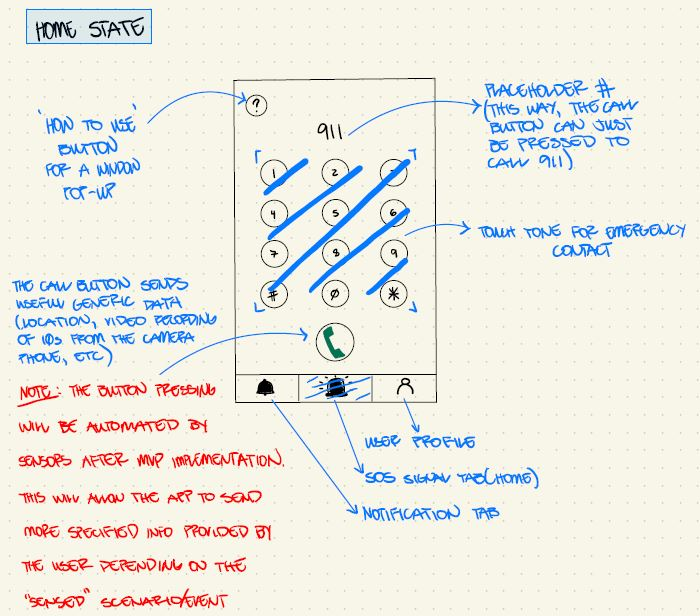 HOME STATE
'HOW TO USE'
BUTTON
FOR A WINDOW
POP-UP
?
911
PLACEHOLDER #
(THIS WAY, THE CALL
BUTTON CAN JUST
BE PRESSED TO
CALL 911)
1 2 3
4 5 6
7 8 9
# 0 *
TOUCH TONE FOR EMERGENCY
CONTACT
THE CALL BUTTON SENDS
USEFUL GENERIC DATA
(LOCATION, VIDEO RECORDING
OF 10s FROM THE CAMERA
PHONE, ETC)
NOTE: THE BUTTON PRESSING
WILL BE AUTOMATED BY
SENSORS AFTER MVP IMPLEMENTATION.
THIS WILL ALLOW THE APP TO SEND
MORE SPECIFIED INFO PROVIDED BY
THE USER DEPENDING ON THE
"SENSED" SCENARIO/EVENT
USER PROFILE
SOS SIGNAL TAB (HOME)
NOTIFICATION TAB